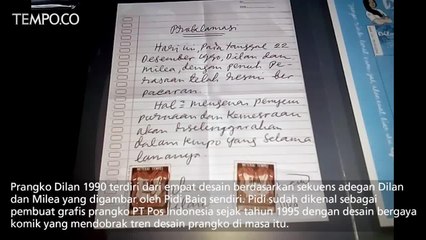 TEMPO.CO
Proklamasi
Hari ini, Pada tanggal 22
Desember 1990, Dilan dan
Milea, dengan penuh Pe
rasaan telah resmi ber
pacaran.
Hal2 mengenai Penyem
purnaan dan Kemesraan
akan diselenggarakan
dalam tempo yang selama
lamanya.
Prangko Dilan 1990 terdiri dari empat desain berdasarkan sekuens adegan Dilan
dan Milea yang digambar oleh Pidi Baiq sendiri. Pidi sudah dikenal sebagai
pembuat grafis prangko PT Pos Indonesia sejak tahun 1995 dengan desain bergaya
komik yang mendobrak tren desain prangko di masa itu.